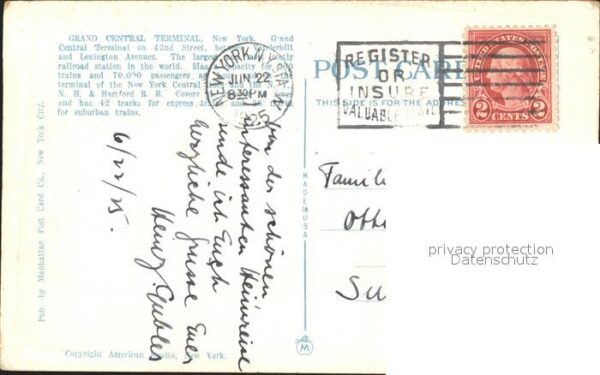 GRAND CENTRAL TERMINAL, New York. Grand
Central Terminal on 42nd Street, between Vanderbilt
and Lexington Avenues. The largest and most costly
railroad station in the world. Has a capacity for
trains and 70,000 passengers
terminal of the New York Central and the N. Y.
N. H. & Hartford R. R. Covers
and has 42 tracks for express trains and 25
for suburban trains.
Pub. by Manhattan Post Card Co., New York City.
Copyright American Studio, New York.
POST CARD
THIS SIDE IS FOR THE ADDRESS
MADE IN USA
M
NEW YORK, N.Y.
JUN 22
8 30 PM
1925
REGISTER
OR
INSURE
VALUABLE MAIL
UNITED STATES POSTAGE
2 CENTS 2
Von der schönen
interessanten Heimreise
sende ich Euch
herzliche Grüsse Euer
Henry
6/22/25.
Famili
Otto
Su
privacy protection
Datenschutz